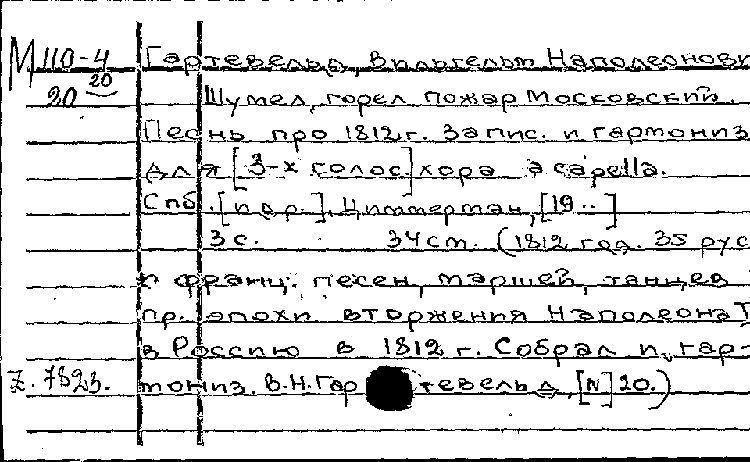 М 110-4 Гартевельд, Вильгельм Наполеонови
20 20 Шумел, горел пожар Московский
Песнь про 1812 г. Запис. и гармониз
для [3-х голос.] хора a capella.
Спб. [и др.], Циммерман, [19..]
3 с. 34 см. (1812 год. 35 рус
и франц. песен, маршей, танцев
пр. эпохи вторжения Наполеона I
в Россию в 1812 г. Собрал и гар-
Z. 7823. мониз. В.Н.Гартевельд, [N] 20.)